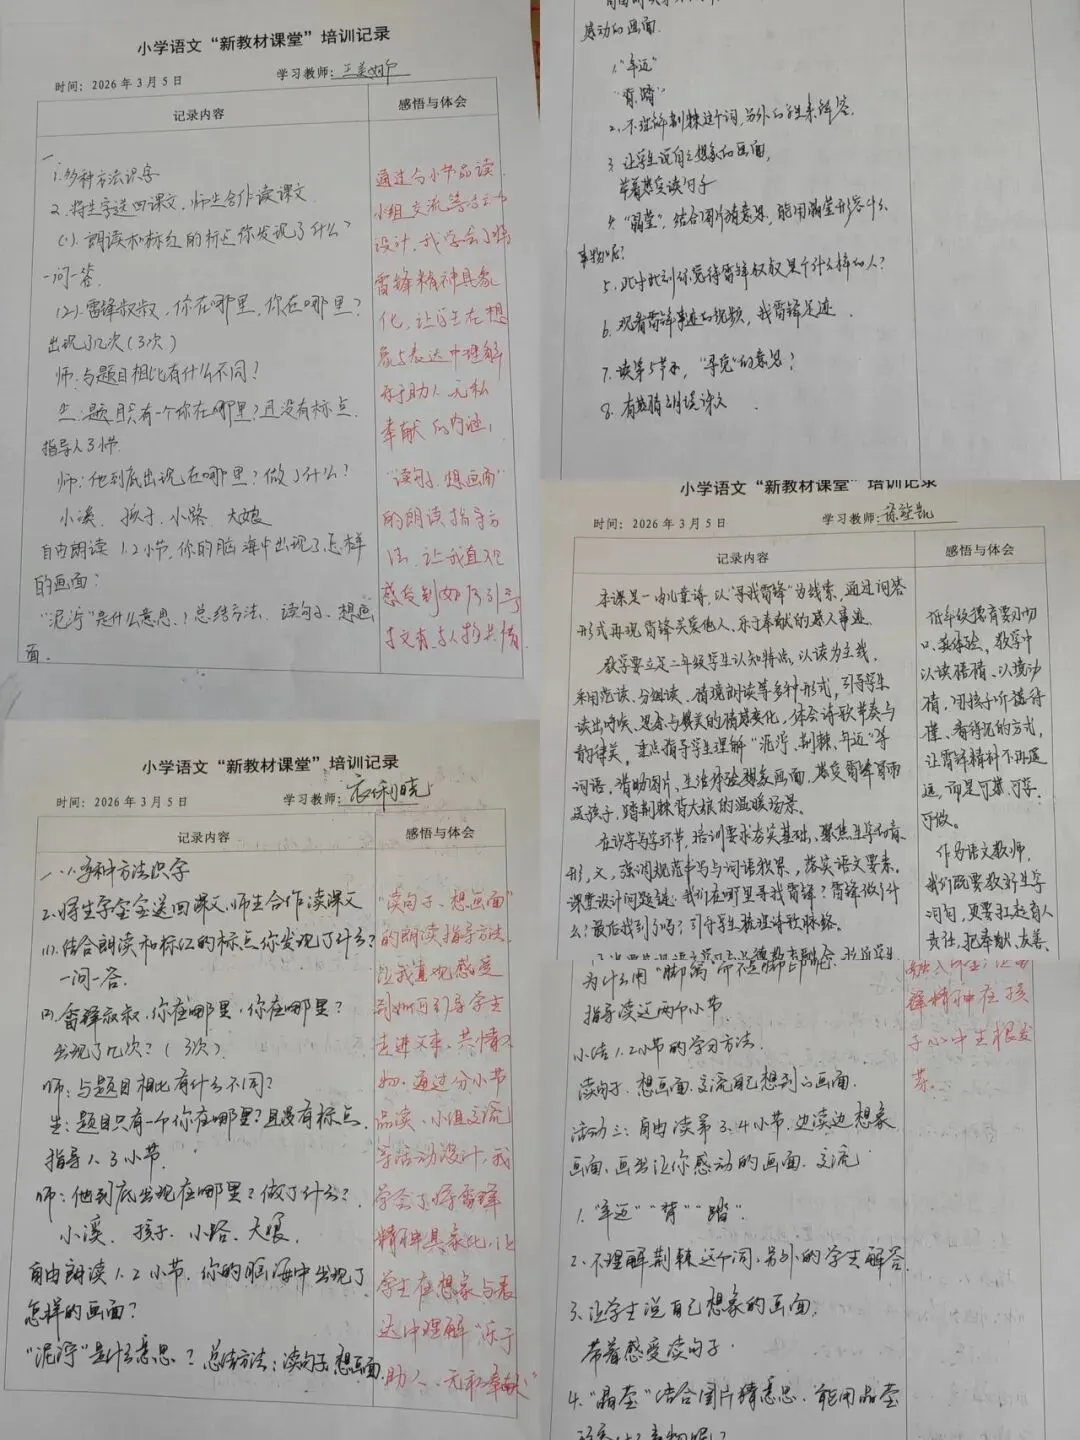 小学语文“新教材课堂”培训记录
时间：2026年3月5日
学习教师：
记录内容
感悟与体会
一
1.多种方法识字
2.将生字送回课文，师生合作读课文
(1).朗读和标红的标点你发现了什么？
一问一答.
(2).雷锋叔叔，你在哪里，你在哪里？
出现了几次（3次）
师：与题目相比有什么不同？
生：题目只有一个你在哪里？且没有标点.
指导1.3小节.
师：他到底出现在哪里？做了什么？
小溪、孩子、小路、大娘
自由朗读1.2小节，你的脑海中出现了怎样
的画面？
“泥泞”是什么意思？总结方法：读句子、想画
面.
通过分小节品读、
小组交流等活动
设计，我学会了将
雷锋精神具象
化，让学生在想
象与表达中理解
乐于助人、无私
奉献的内涵，
“读句子、想画面”
的朗读指导方
法，让我直观
感受到如何引导
学文有与人物共情
感动的画面.
1.“年迈”
“背、踏”
2.不理解荆棘这个词，另外的学生来解答.
3.让学生说自己想象的画面，
带着感受读句子
4.“晶莹”，结合图片猜意思，能用晶莹形容什么
事物呢？
5.此时此刻你觉得雷锋叔叔是个什么样的人？
6.观看雷锋事迹的视频，找雷锋足迹.
7.读第5节，“寻觅”的意思？
8.有感情朗读课文.
小学语文“新教材课堂”培训记录
时间：2026年3月5日
学习教师：
记录内容
感悟与体会
本课是一首儿童诗，以“寻找雷锋”为线索，通过问答
形式再现雷锋关爱他人、乐于奉献的感人事迹。
教学要立足二年级学生认知特点，以读为主线，
采用范读、分组读、情境朗读等多种形式，引导学生
读出呼唤、思念与赞美的情感变化，体会诗歌节奏与
韵律美，重点指导学生理解“泥泞、荆棘、年迈”等
词语，借助图片、生活体验想象画面，感受雷锋冒雨
送孩子、踏荆棘背大娘的温暖场景。
在识字写字环节，培训要求夯实基础、聚焦生字的音、
形、义，强调规范书写与词语积累，落实语文要素。
课堂设计问题链：我们在哪里寻找雷锋？雷锋做了什
么？最后找到了吗？引导学生梳理诗歌脉络。
低年级德育要小切
口、真体验，教学中
以读悟情、以境动
情，用孩子听得
懂、看得见的方式，
让雷锋精神不再遥
远，而是可感、可学、
可做。
作为语文教师，
我们既要教好生字
词句，更要扛起育人
责任，把奉献、友善、
小学语文“新教材课堂”培训记录
时间：2026年3月5日
学习教师：衣利晓
记录内容
感悟与体会
一、1.多种方法识字
2.将生字宝宝送回课文，师生合作读课文
(1).结合朗读和标红的标点你发现了什么？
一问一答.
(2).雷锋叔叔，你在哪里，你在哪里？
出现了几次？（3次）
师：与题目相比有什么不同？
生：题目只有一个你在哪里？且没有标点.
指导1、3小节.
师：他到底出现在哪里？做了什么？
小溪、孩子、小路、大娘.
自由朗读1.2小节，你的脑海中出现了
怎样的画面？
“泥泞”是什么意思？总结方法：读句子、想画面.
“读句子、想画面”
的朗读指导方法，
让我直观感受
到如何引导学生
走进文本、共情人
物.通过分小节
品读、小组交流
等活动设计，我
学会了将雷锋
精神具象化，让
学生在想象与表
达中理解“乐于
助人、无私奉献”
为什么用“脚窝”而不是脚印呢？
指导读这两个小节.
小结1.2小节的学习方法.
读句子、想画面、交流自己想到的画面.
活动三：自由读第3、4小节，边读边想象
画面、画出让你感动的画面、交流
1.“年迈”“背”“踏”.
2.不理解荆棘这个词，另外的学生解答.
3.让学生说自己想象的画面.
带着感受读句子.
4.“晶莹”结合图片猜意思，能用晶莹
锋精神在孩
子心中生根发
芽。